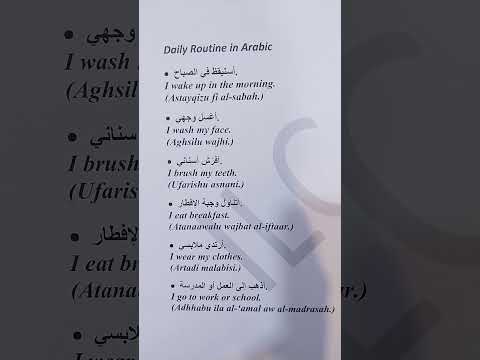 Daily Routine in Arabic
• أستيقظ في الصباح.
I wake up in the morning.
(Astayqizu fi al-sabah.)
• أغسل وجهي.
I wash my face.
(Aghsilu wajhi.)
• أفرش أسناني.
I brush my teeth.
(Ufarishu asnani.)
• أتناول وجبة الافطار.
I eat breakfast.
(Atanaawalu wajbat al-iftaar.)
• أرتدي ملابسي.
I wear my clothes.
(Artadi malabisi.)
• أذهب إلى العمل أو المدرسة.
I go to work or school.
(Adhhabu ila al-'amal aw al-madrasah.)
ILC